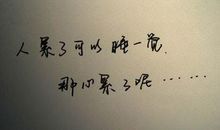 人累了可以睡一觉
那心累了呢……